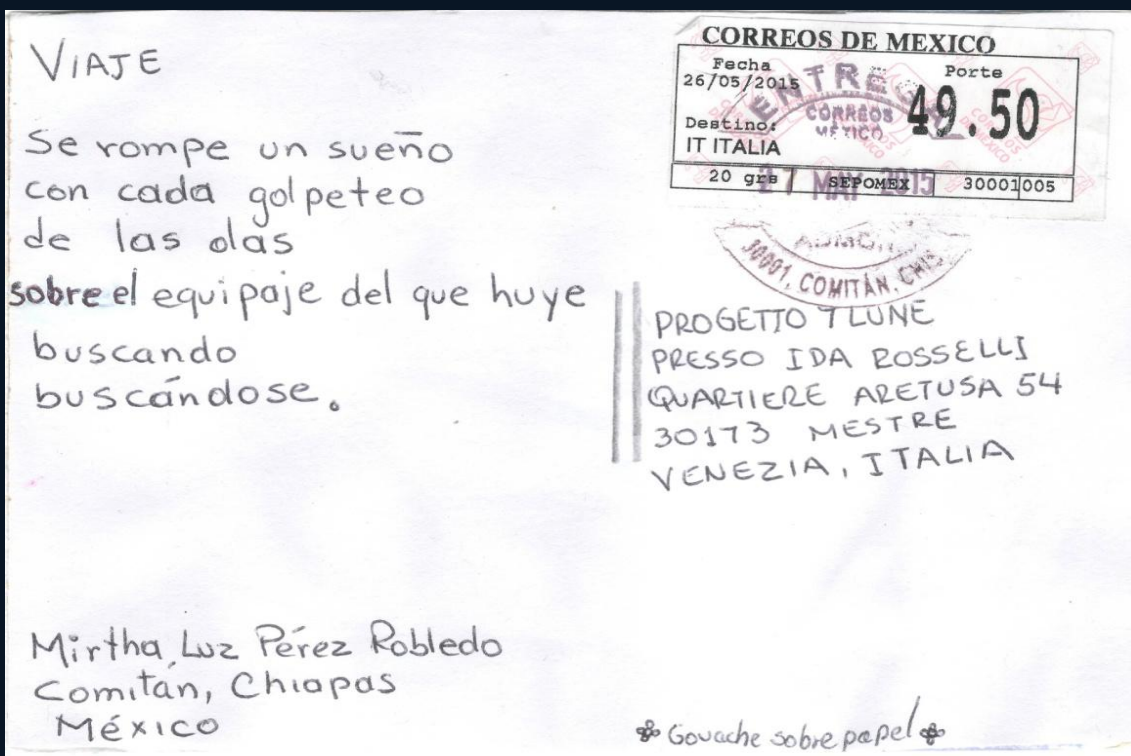 VIAJE
Se rompe un sueño
con cada golpeteo
de las olas
sobre el equipaje del que huye
buscando
buscándose.
Mirtha Luz Pérez Robledo
Comitán, Chiapas
México
CORREOS DE MEXICO
Fecha
26/05/2015
Porte
49.50
Destino:
IT ITALIA
20 grs
SEPOMEX
30001005
CORREOS
MÉXICO
27 MAY 2015
30001, COMITÁN, CHIS
PROGETTO 7LUNE
PRESSO IDA ROSSELLI
QUARTIERE ARETUSA 54
30173 MESTRE
VENEZIA, ITALIA
Gouache sobre papel